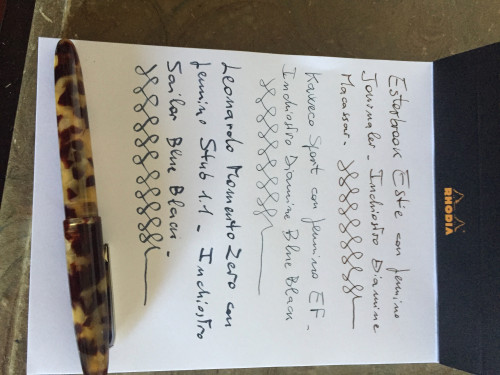 RHODIA
Esterbrook Este con pennino
Journaler - Inchiostro Diamine
Macassar -
Kaweco Sport con pennino EF -
Inchiostro Diamine Blue Black
Leonardo Momento Zero con
pennino Stub 1.1 - Inchiostro
Sailor Blue Black -